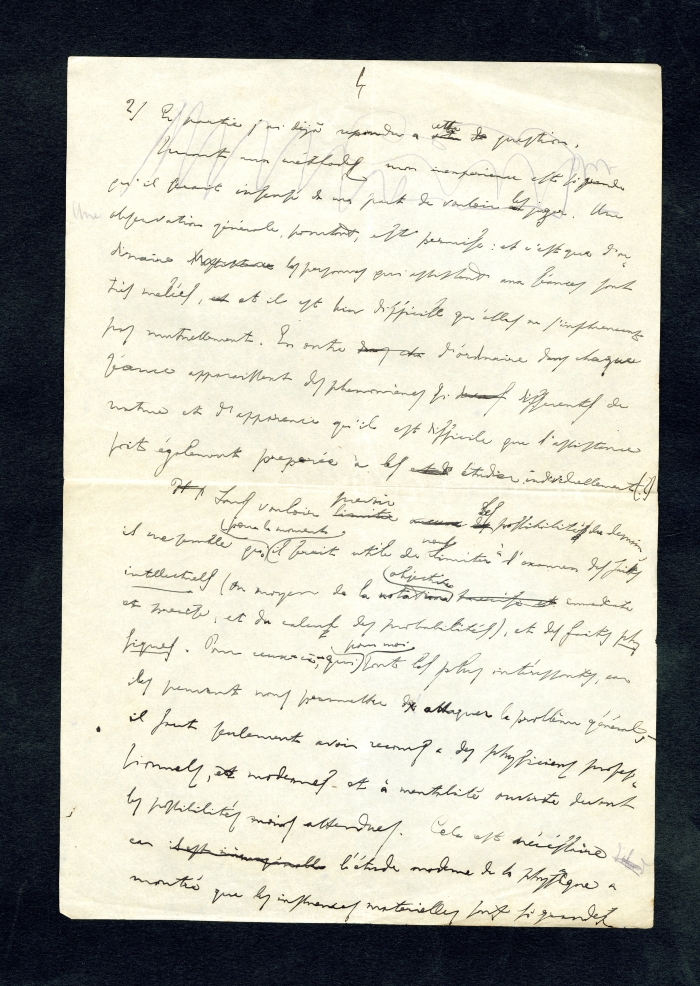 4
2) En partie j'ai déjà repondu a cette question.
Quant aux méthodes mon inexperience est si grande
qu'il serait insensé de ma part de vouloir les juger. Une
Une
observation générale, pourtant, est permise: et c'est que d'or-
dinaire les personnes qui assistent aux séances sont
très mêlées, et il est bien difficile qu'elles ne s'influencent
pas mutuellement. En outre d'ordinaire dans chaque
séance apparaissent des phenomènes si differents de
nature et d'apparence qu'il est difficile que l'assistance
soit également preparée à les étudier individuellement (.)
Sans vouloir prevoir les possibilités du demain
il me semble que (pour le moment) il serait utile de nous limiter à l'examen des faits
intellectuels (au moyen de la notation objective immediate
et precise, et du calcul des probabilités), et des faits phy
siques. Pour ceux-ci, qui pour moi sont les plus intéressants, car
ils peuvent nous permettre d'attaquer le problème général,
il faut seulement avoir recours a des physiciens profes-
sionnels, modernes et à mentalité ouverte devant
les possibilités moins attendues. Cela est nécéssaire
car l'étude moderne de la physique a
montré que les influences materielles sont si grandes